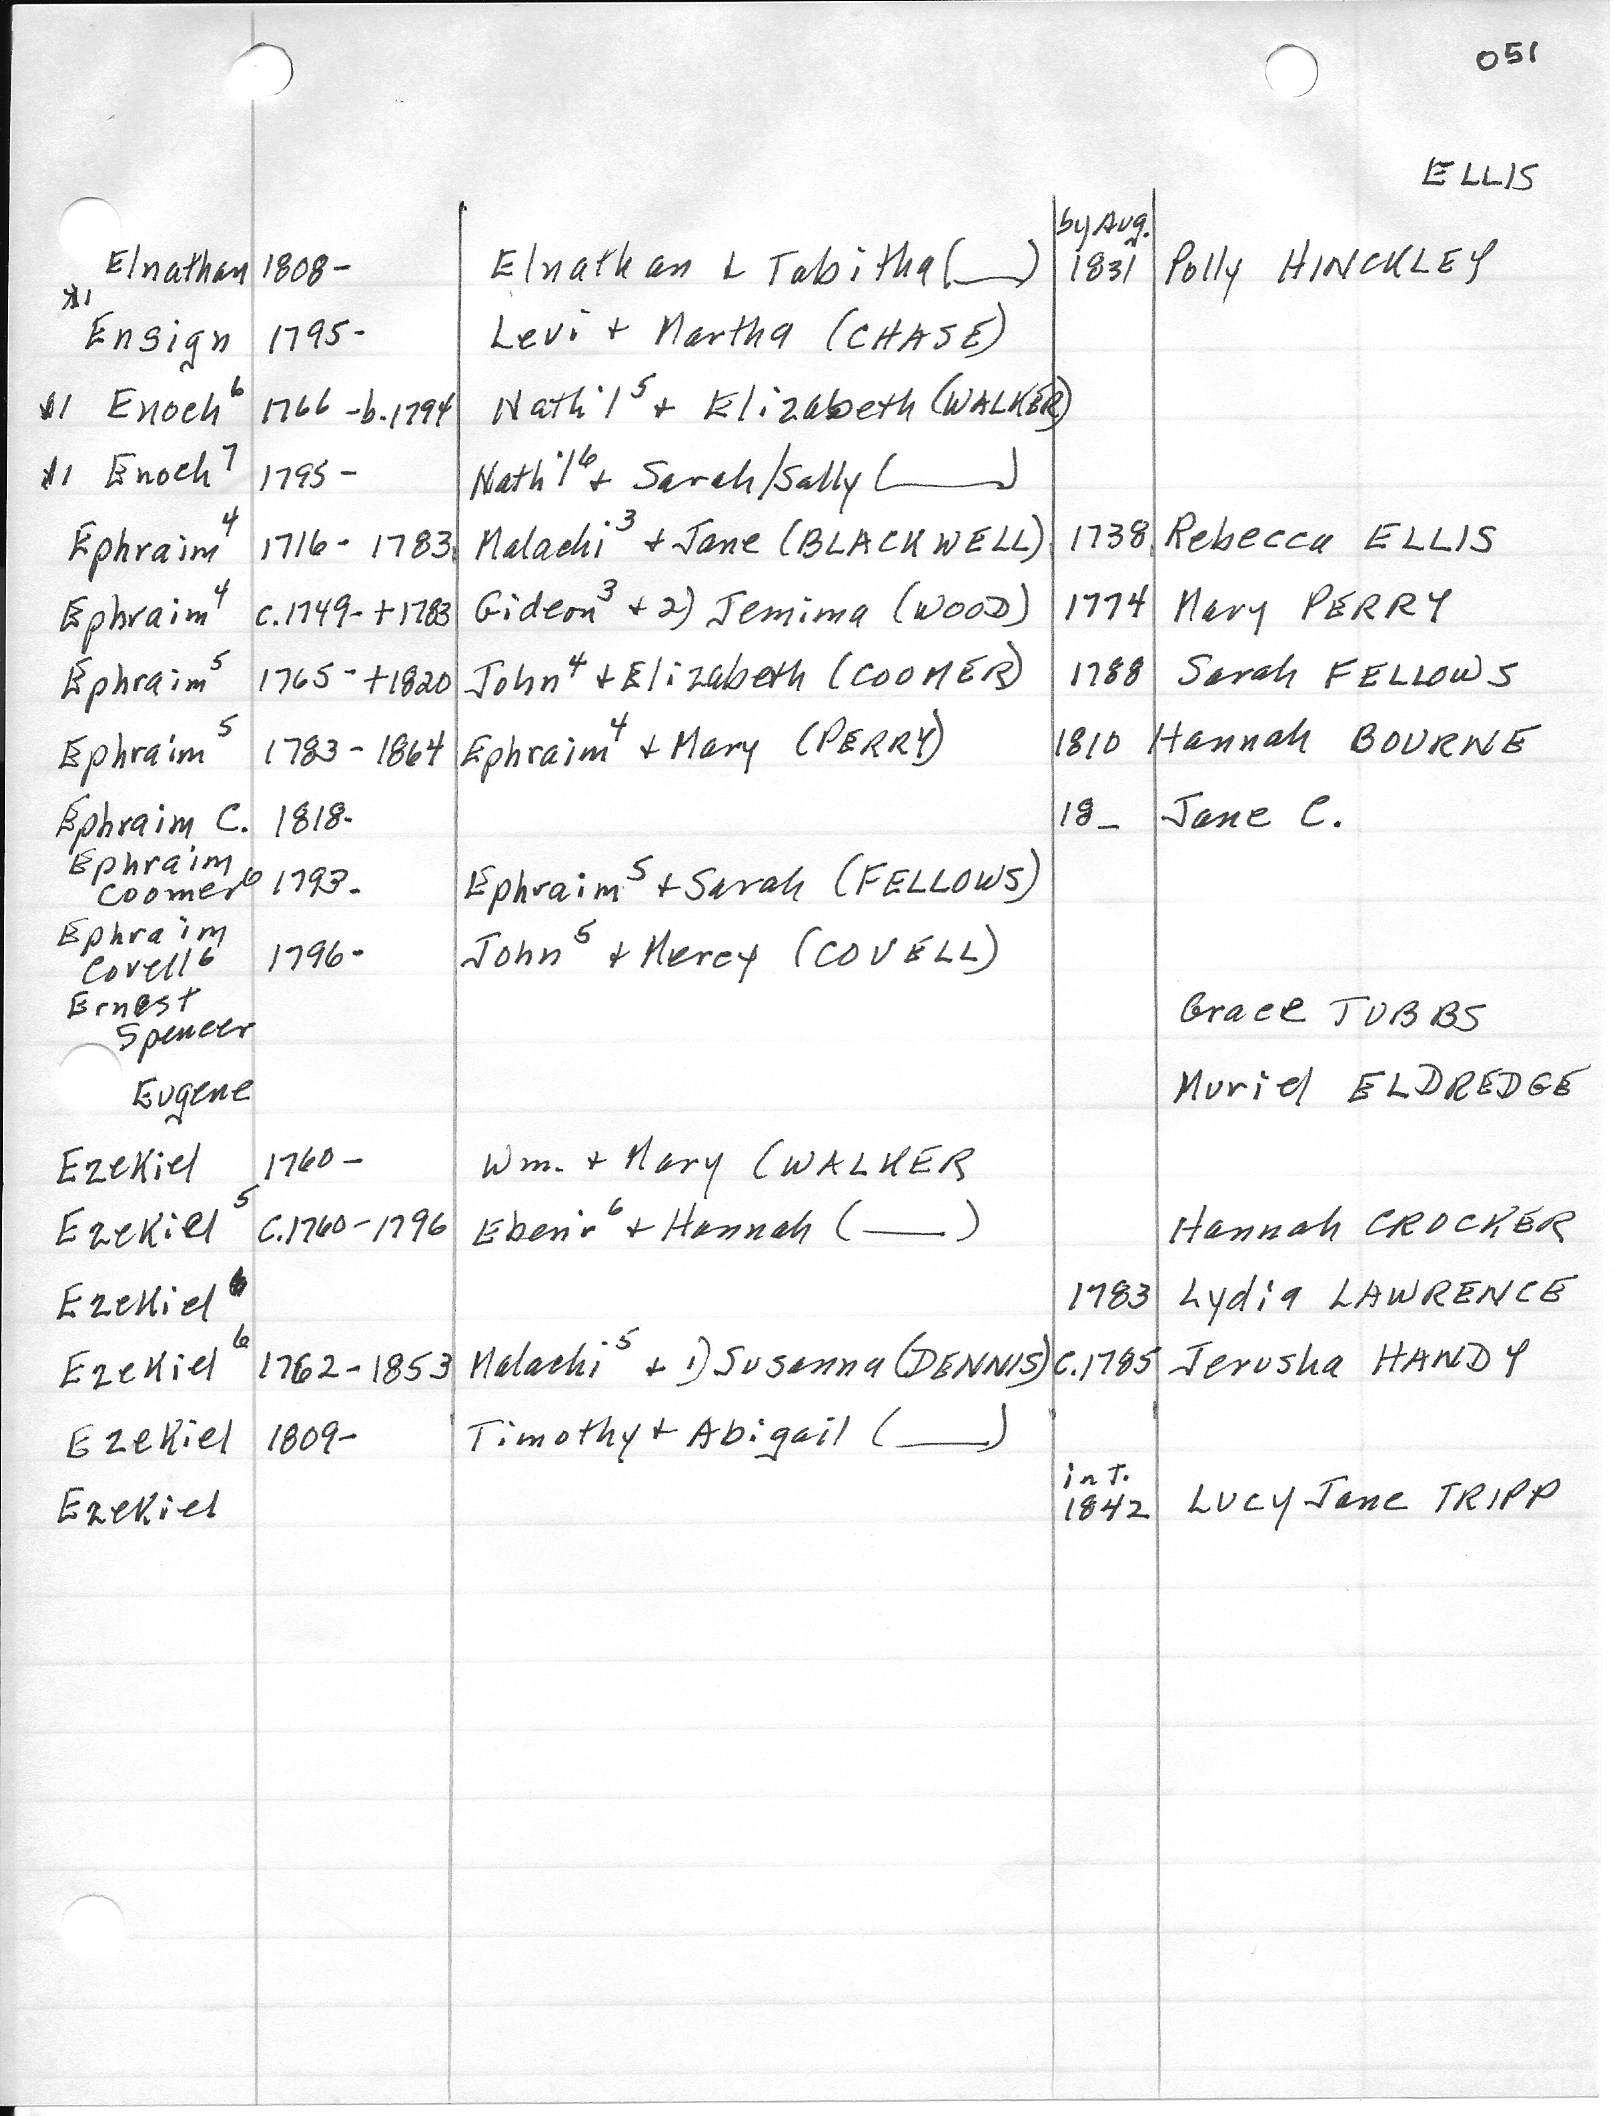 051
ELLIS
by Aug.
Elnathan 1808- Elnathan & Tabitha (___) 1831 Polly HINCKLEY
*1
Ensign 1795- Levi + Martha (CHASE)
*1 Enoch⁶ 1766-b.1794 Nath'l⁵ + Elizabeth (WALKER)
*1 Enoch⁷ 1795- Nath'l⁶ + Sarah/Sally (___)
Ephraim⁴ 1716-1783 Malachi³ + Jane (BLACKWELL) 1738 Rebecca ELLIS
Ephraim⁴ c.1749-+1783 Gideon³ + 2) Jemima (WOOD) 1774 Mary PERRY
Ephraim⁵ 1765-+1820 John⁴ + Elizabeth (COOMER) 1788 Sarah FELLOWS
Ephraim⁵ 1783-1864 Ephraim⁴ + Mary (PERRY) 1810 Hannah BOURNE
Ephraim C. 1818- 18_ Jane C.
Ephraim
Coomer⁶ 1793- Ephraim⁵ + Sarah (FELLOWS)
Ephraim
Covell⁶ 1796- John⁵ + Mercy (COVELL)
Ernest
Spencer Grace TUBBS
Eugene Muriel ELDREDGE
Ezekiel 1760- Wm. + Mary (WALKER
Ezekiel⁵ C.1760-1796 Eben'r⁶ + Hannah (___) Hannah CROCKER
Ezekiel⁶ 1783 Lydia LAWRENCE
Ezekiel⁶ 1762-1853 Malachi⁵ + 1) Susanna (DENNIS) C.1785 Jerusha HANDY
Ezekiel 1809- Timothy + Abigail (___)
int.
Ezekiel 1842 Lucy Jane TRIPP